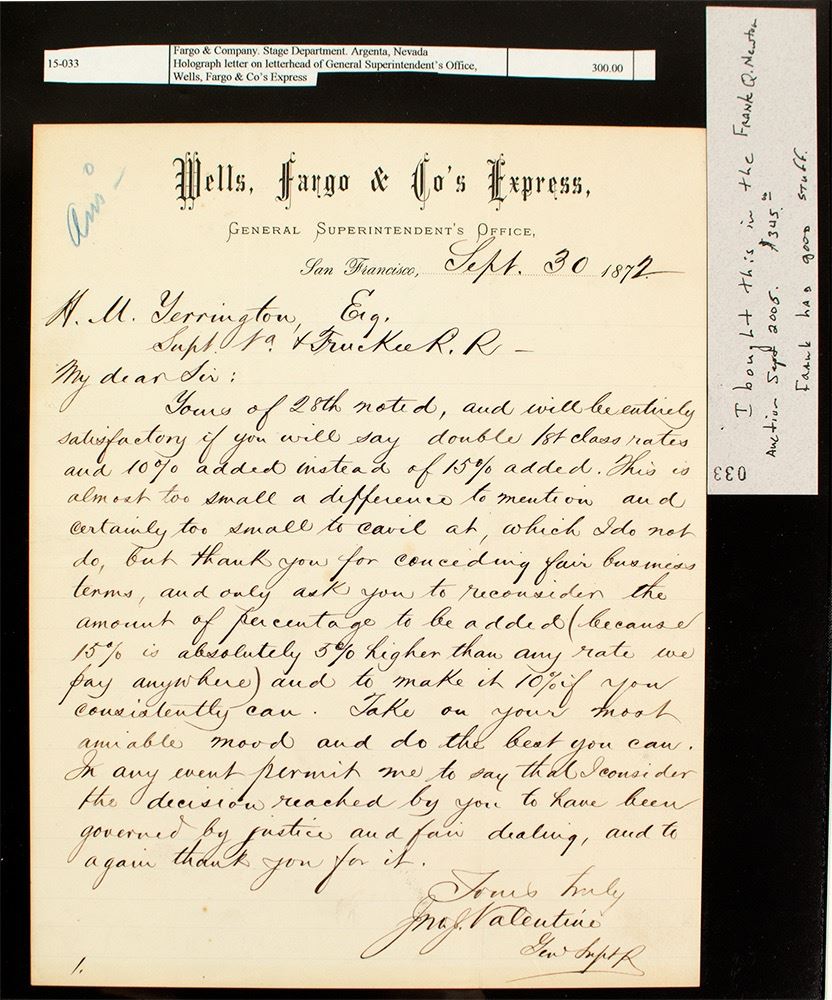 15-033
Fargo & Company. Stage Department. Argenta, Nevada
Holograph letter on letterhead of General Superintendent's Office,
Wells, Fargo & Co's Express
300.00
Ans
Wells, Fargo & Co's Express,
GENERAL SUPERINTENDENT'S OFFICE,
San Francisco, Sept. 30 1872
H. M. Yerrington, Esq.
Supt. Va. & Truckee R. R –
My dear Sir:
Yours of 28th noted, and will be entirely
satisfactory if you will say double 1st class rates
and 10% added instead of 15% added. This is
almost too small a difference to mention and
certainly too small to cavil at, which I do not
do, but thank you for conceding fair business
terms, and only ask you to reconsider the
amount of percentage to be added (because
15% is absolutely 5% higher than any rate we
pay anywhere) and to make it 10% if you
consistently can. Take on your most
amiable mood and do the best you can.
In any event permit me to say that I consider
the decision reached by you to have been
governed by justice and fair dealing, and to
again thank you for it.
Yours truly
Jno J. Valentine
Genl Supt
1.
I bought this in the Frank Q. Newton
Auction Sept 2005. $345.00
Frank had good stuff.
033